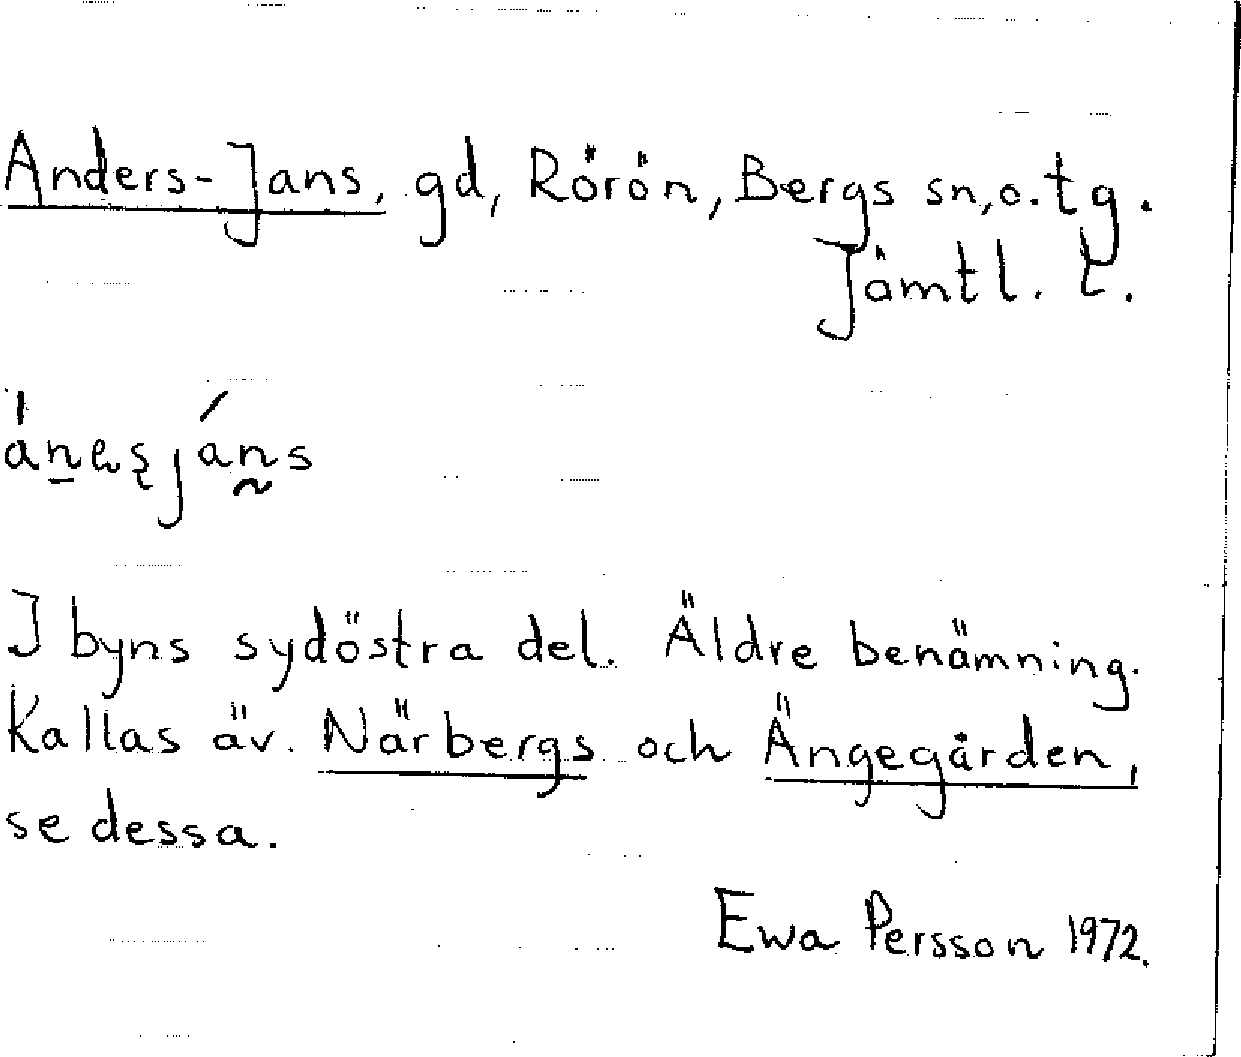 Anders-Jans, gd, Rörön, Bergs sn, o. tg.
Jämtl. l.
I byns sydöstra del. Äldre benämning.
Kallas äv. Närbergs och Ängegården,
se dessa.
Ewa Persson 1972.